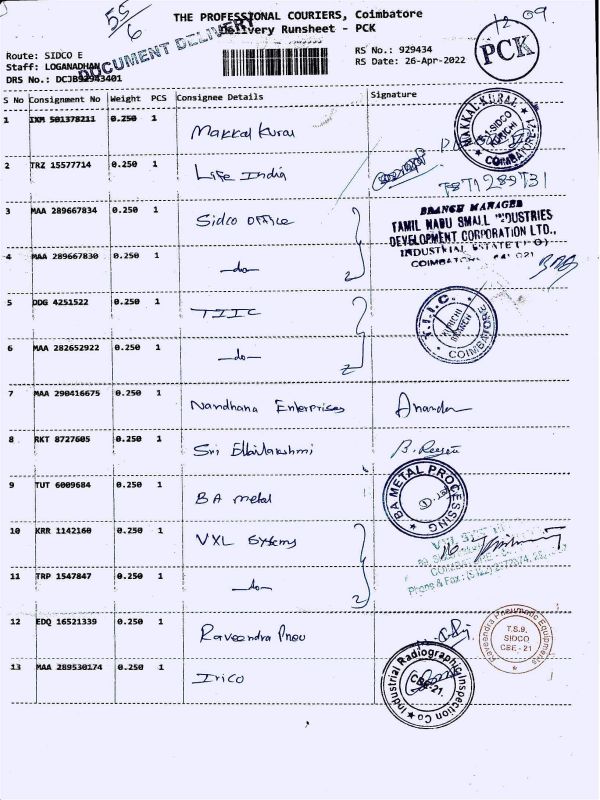 55/6
THE PROFESSIONAL COURIERS, Coimbatore
Delivery Runsheet - PCK
DOCUMENT DELIVERY
12 09.
PCK
Route: SIDCO E
Staff: LOGANADHAN
DRS No.: DCJB92943401
RS No.: 929434
RS Date: 26-Apr-2022
S No Consignment No Weight PCS Consignee Details Signature
1 IXM 501378211 0.250 1 Makkal Kural
MAKKAL KURAL SIDCO KURICHI COIMBATORE
2 TRZ 15577714 0.250 1 Life India
7871289731
3 MAA 289667834 0.250 1 Sidco Office
BRANCH MANAGER
TAMIL NADU SMALL INDUSTRIES
DEVELOPMENT CORPORATION LTD.,
INDUSTRIAL ESTATE (P O)
COIMBATORE 641 021
4 MAA 289667830 0.250 1 —do— 2
5 DDG 4251522 0.250 1 TIIC
T.I.I.C. KURICHI BRANCH COIMBATORE
6 MAA 282652922 0.250 1 —do— 2
7 MAA 290416675 0.250 1 Nandhana Enterprises
8 RKT 8727605 0.250 1 Sri
9 TUT 6009684 0.250 1 BA metal
BA METAL PROCESSING
10 KRR 1142160 0.250 1 VXL Systems
COIMBATORE
Phone & Fax
11 TRP 1547847 0.250 1 —do— 2
12 EDQ 16521339 0.250 1 Raveendra Pneu
Raveendra Pneumatic Equipments T.S.9, SIDCO CBE - 21
13 MAA 289530174 0.250 1 Irico
Industrial Radiographic Inspection Co CBE-21.